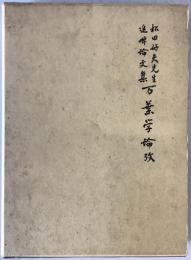 松田好夫先生
追悼論文集
万葉学論攷